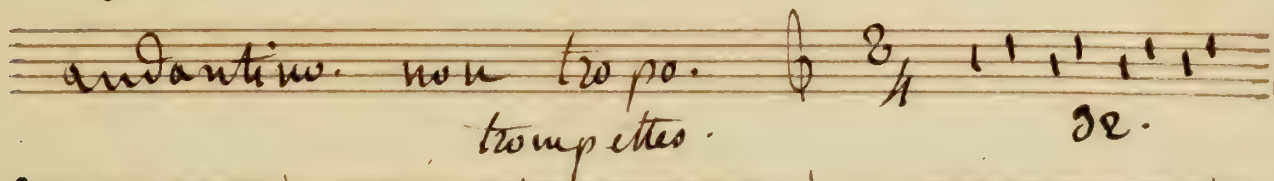 andantino. non tropo. 2/4
trompettes. 32.